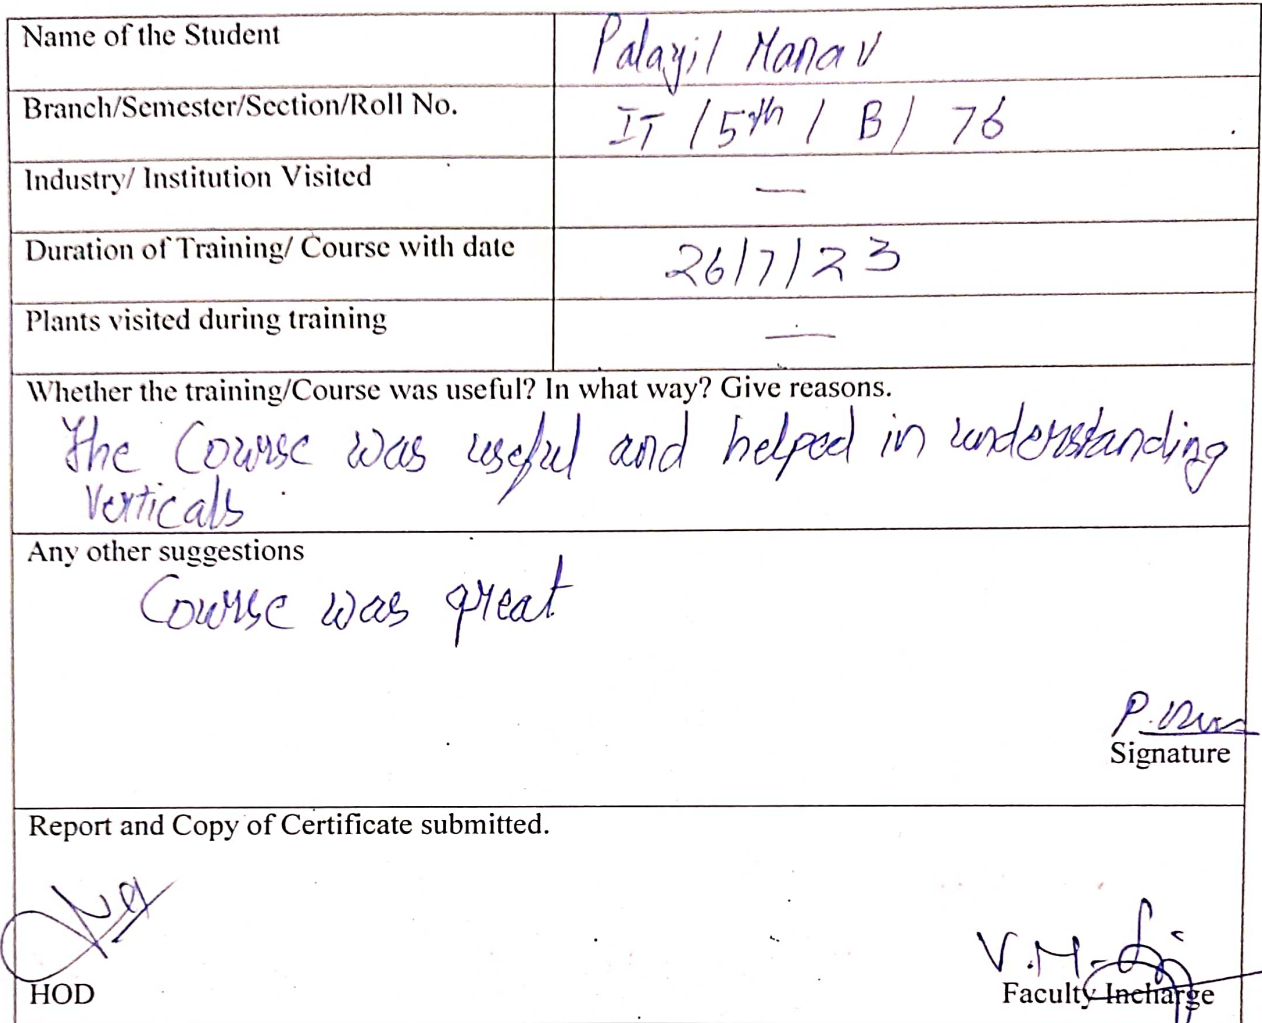 Name of the Student Palayil Manav
Branch/Semester/Section/Roll No. IT / 5th / B / 76
Industry/ Institution Visited —
Duration of Training/ Course with date 26/7/23
Plants visited during training —
Whether the training/Course was useful? In what way? Give reasons.
The Course was useful and helped in understanding
verticals
Any other suggestions
Course was great
Signature
Report and Copy of Certificate submitted.
V.M.
HOD Faculty Incharge